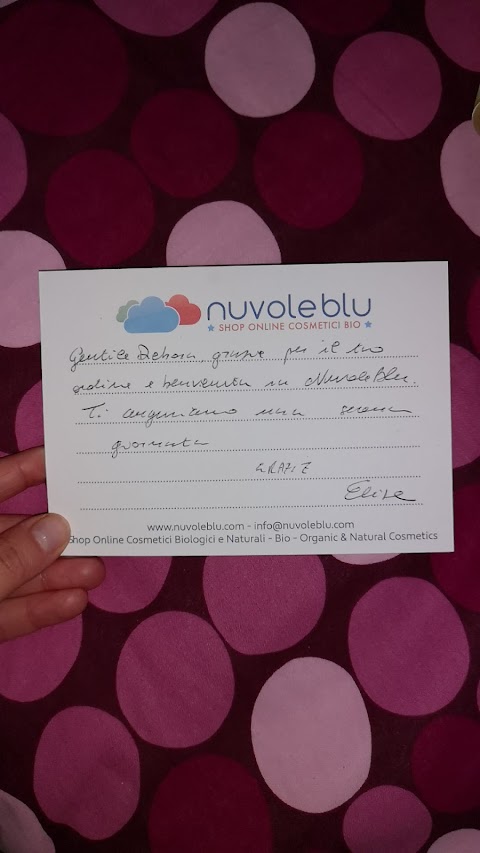 nuvoleblu
★ SHOP ONLINE COSMETICI BIO ★
Gentile Debora, grazie per il tuo
ordine e benvenuta su NuvoleBlu.
Ti auguriamo una serena
giornata
GRAZIE
Elisa
www.nuvoleblu.com - info@nuvoleblu.com
Shop Online Cosmetici Biologici e Naturali - Bio - Organic & Natural Cosmetics